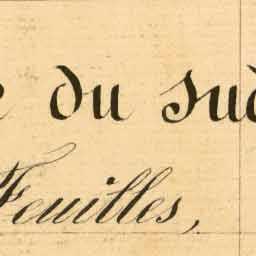 du sud
Feuilles,